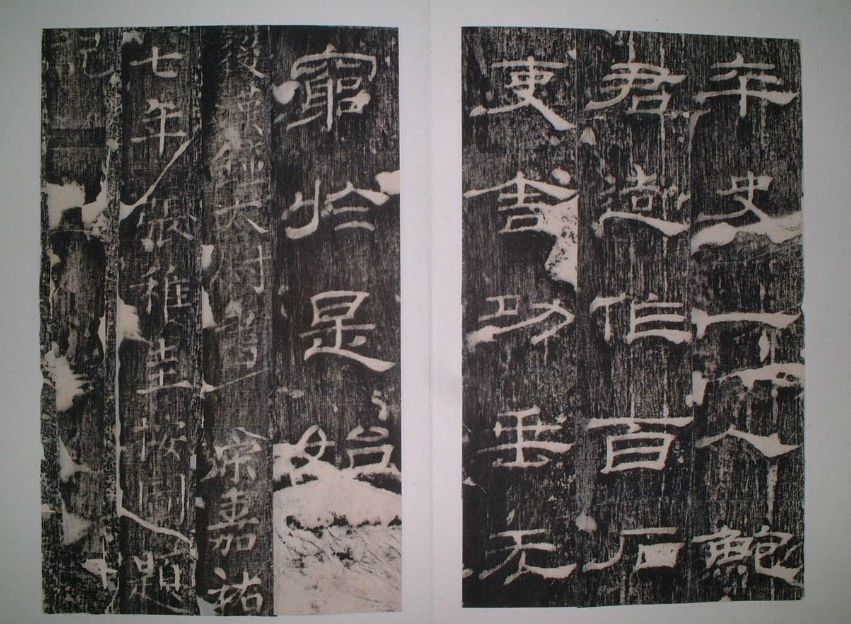 卒史一人鮑
君造作百石
吏舍功垂无
窮於是始
後漢鍾太尉書宋嘉祐
七年張稚圭按圖題
記